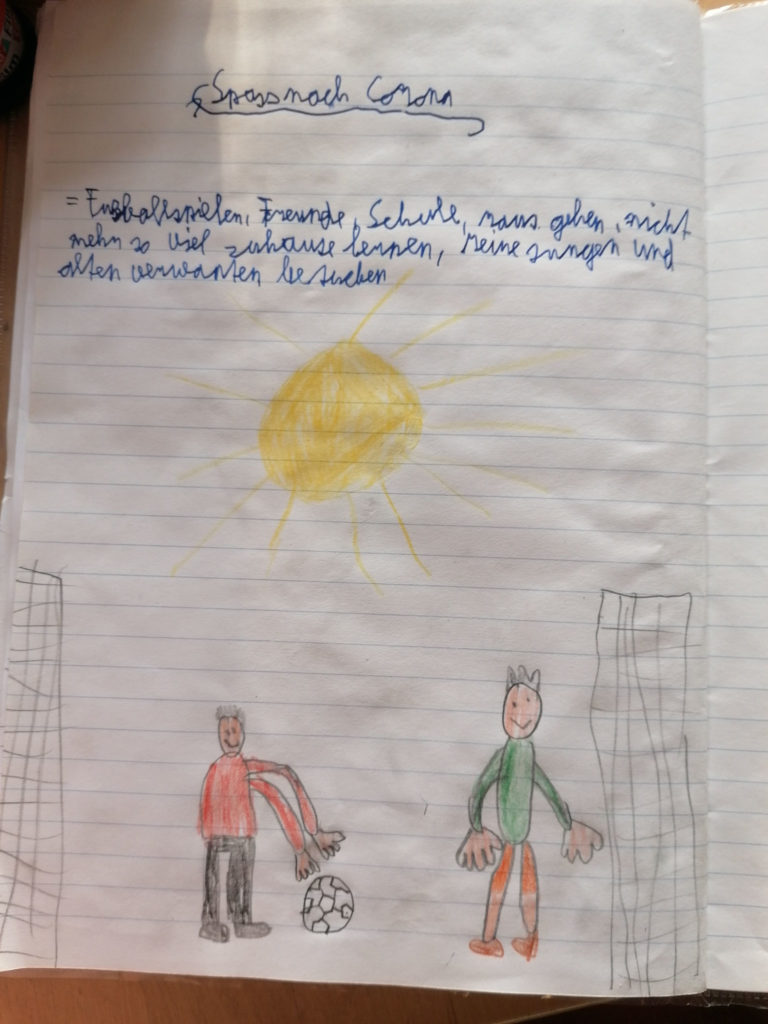 Spass nach Corona
= Fussballspielen, Freunde, Schule, raus gehen, nicht
mehr so viel zuhause lernen, Meine jungen und
alten verwanten besuchen